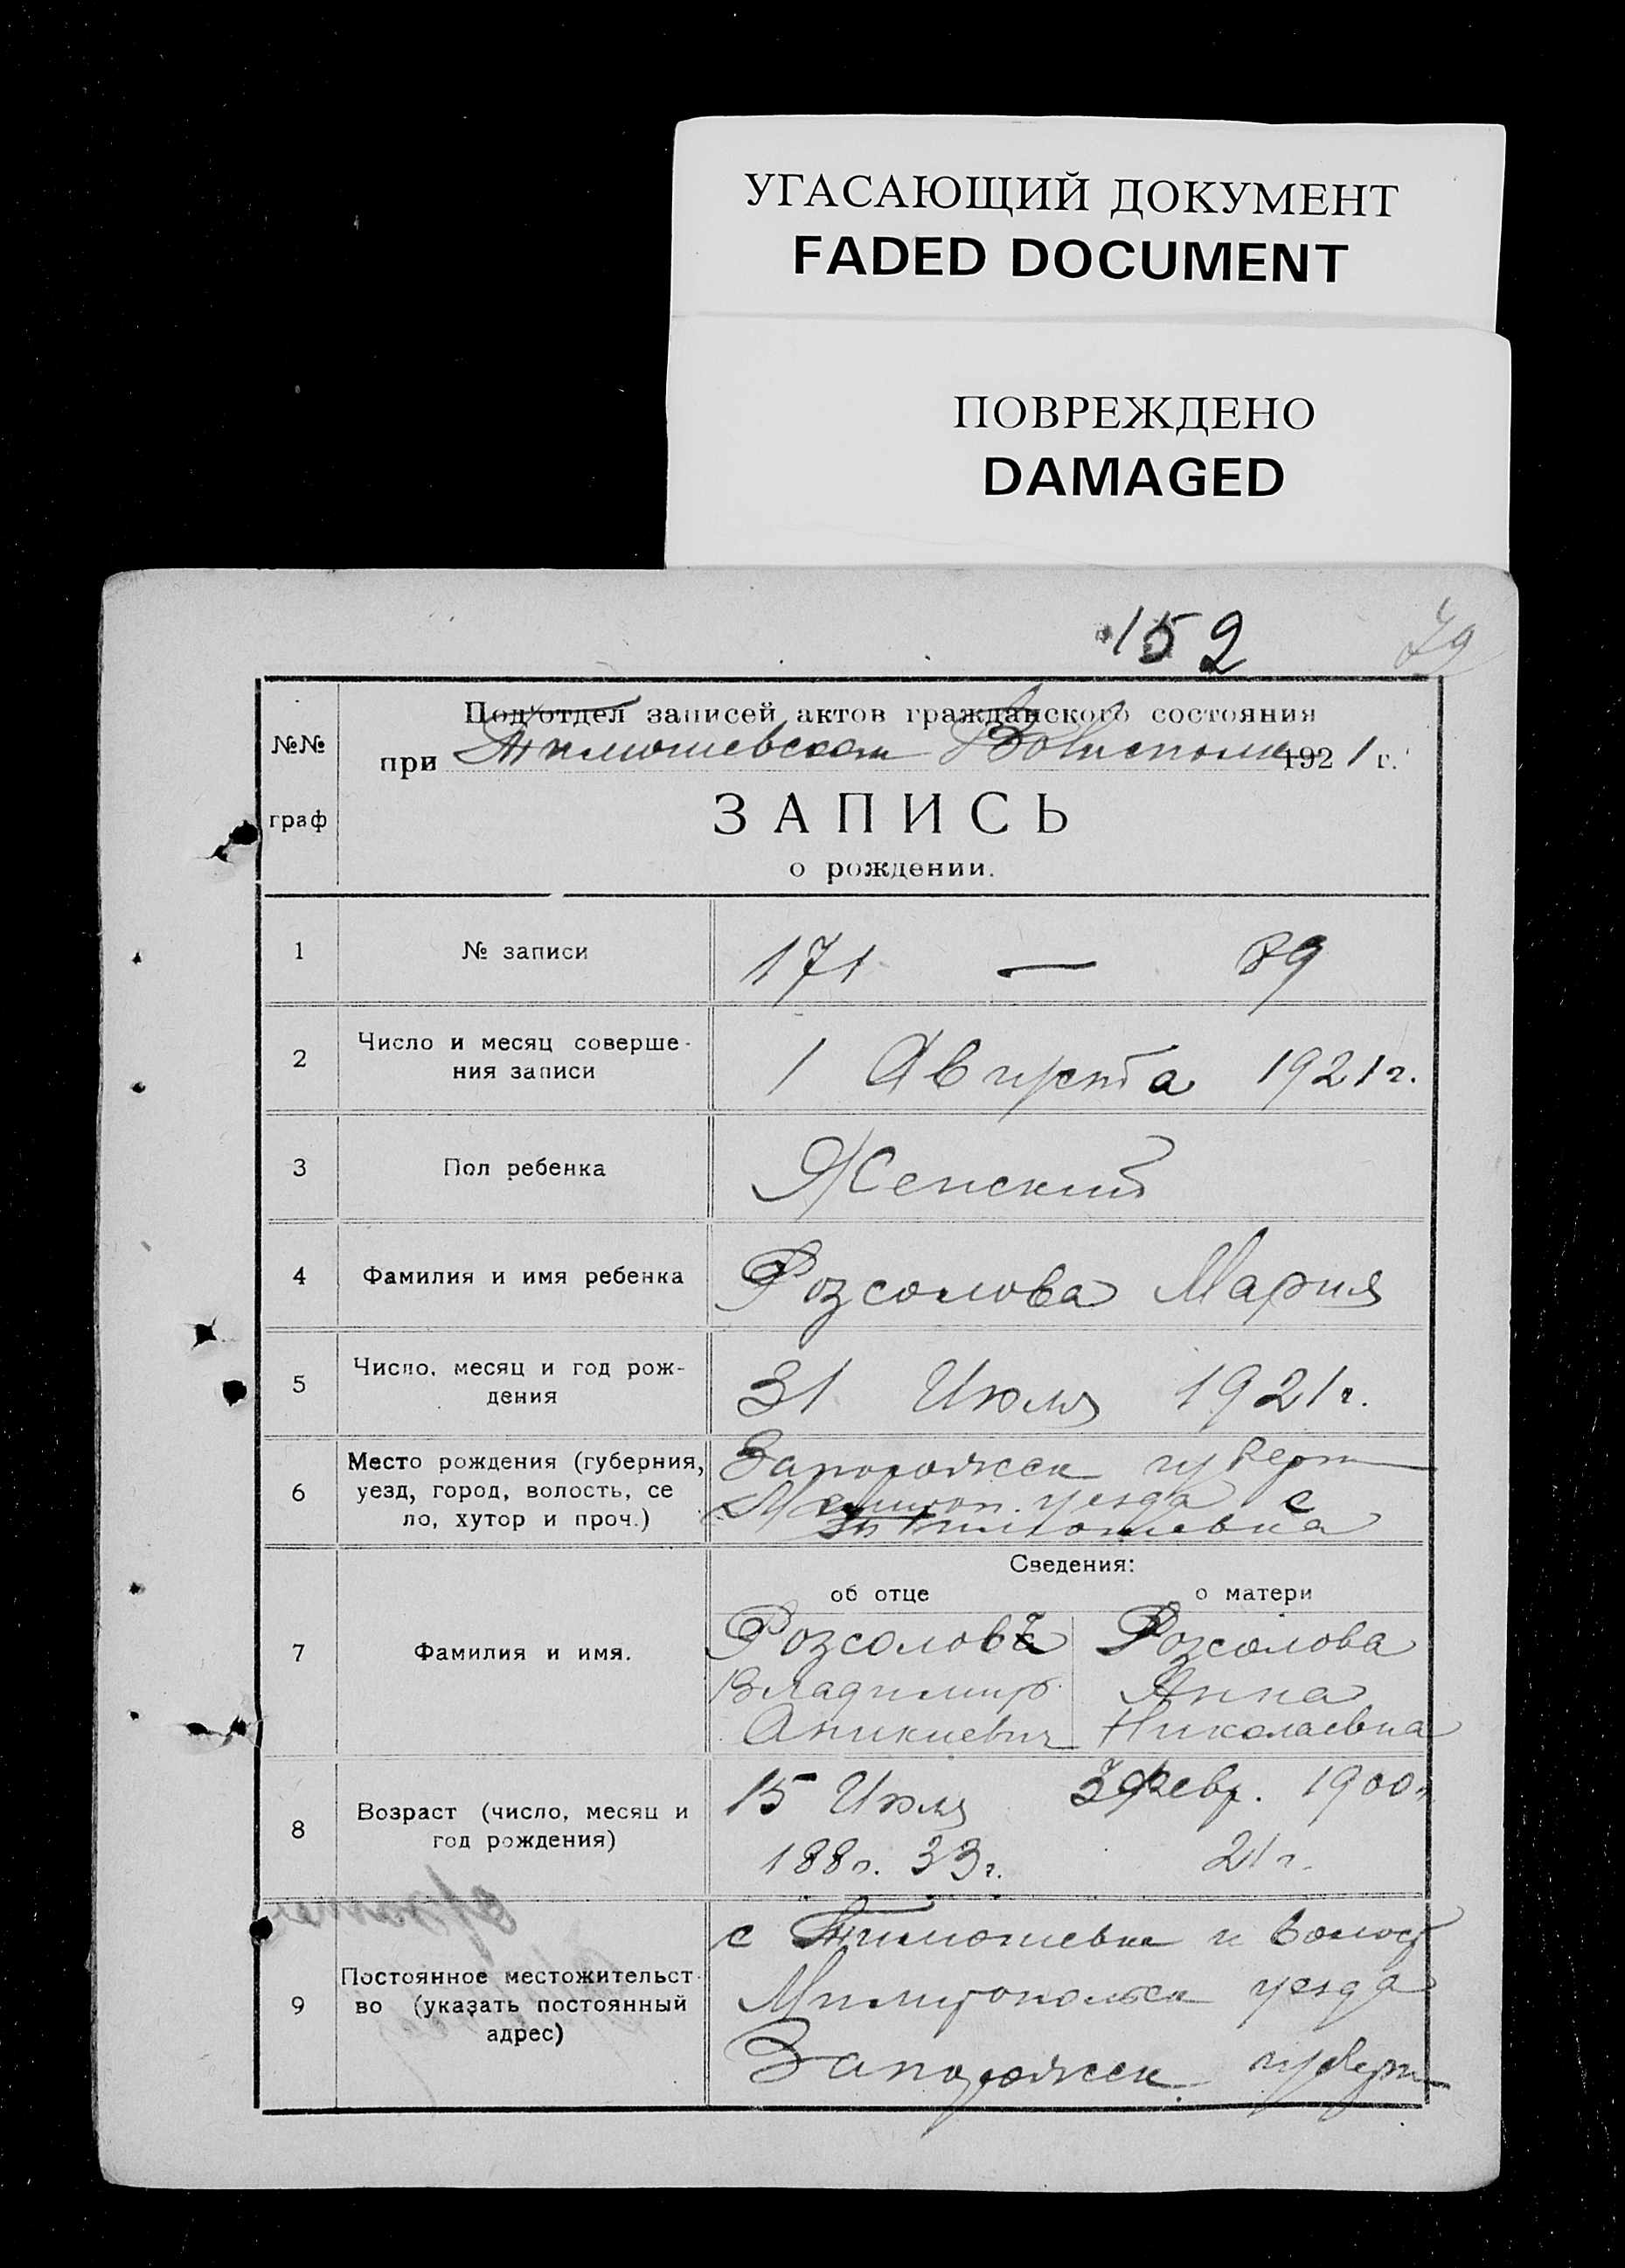 УГАСАЮЩИЙ ДОКУМЕНТ
FADED DOCUMENT
ПОВРЕЖДЕНО
DAMAGED
152 79
№№
граф
Под'отдел записей актов гражданского состояния
при Тимошевском Волисполк 1921 г.
ЗАПИСЬ
о рождении.
1 № записи 171 — 89
2 Число и месяц соверше-
ния записи
1 Августа 1921 г.
3 Пол ребенка Женский
4 Фамилия и имя ребенка Розсолова Мария
5 Число, месяц и год рож-
дения
31 Июля 1921 г.
6 Место рождения (губерния,
уезд, город, волость, се
ло, хутор и проч.)
Запорожск губерн
Мелитоп. уезда с
Тимошевка
Сведения:
об отце о матери
7 Фамилия и имя.
Розсоловъ Розсолова
Владимир Анна
Аникиевич Николаевна
8 Возраст (число, месяц и
год рождения)
15 Июля 3 Февр. 1900
188 г. 33 г. 21 г.
9 Постоянное местожительст
во (указать постоянный
адрес)
с Тимошевка и волост
Милитопольск уезда
Запорожск. губерн